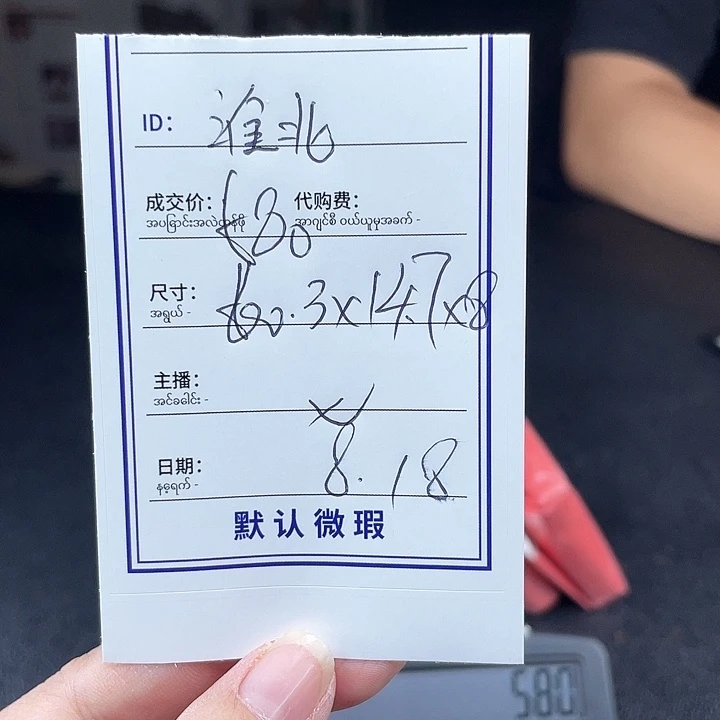 ID: 淮北
成交价: 680 代购费:
အပြောင်းအလဲတန်ဖိုး အာဂျင်စီ ဝယ်ယူမှုအခက် -
尺寸: 60.3×14.7×8
အရွယ် -
主播:
အင်ခေါင်း -
日期: 8.18
နေ့ရက် -
默认微瑕
580